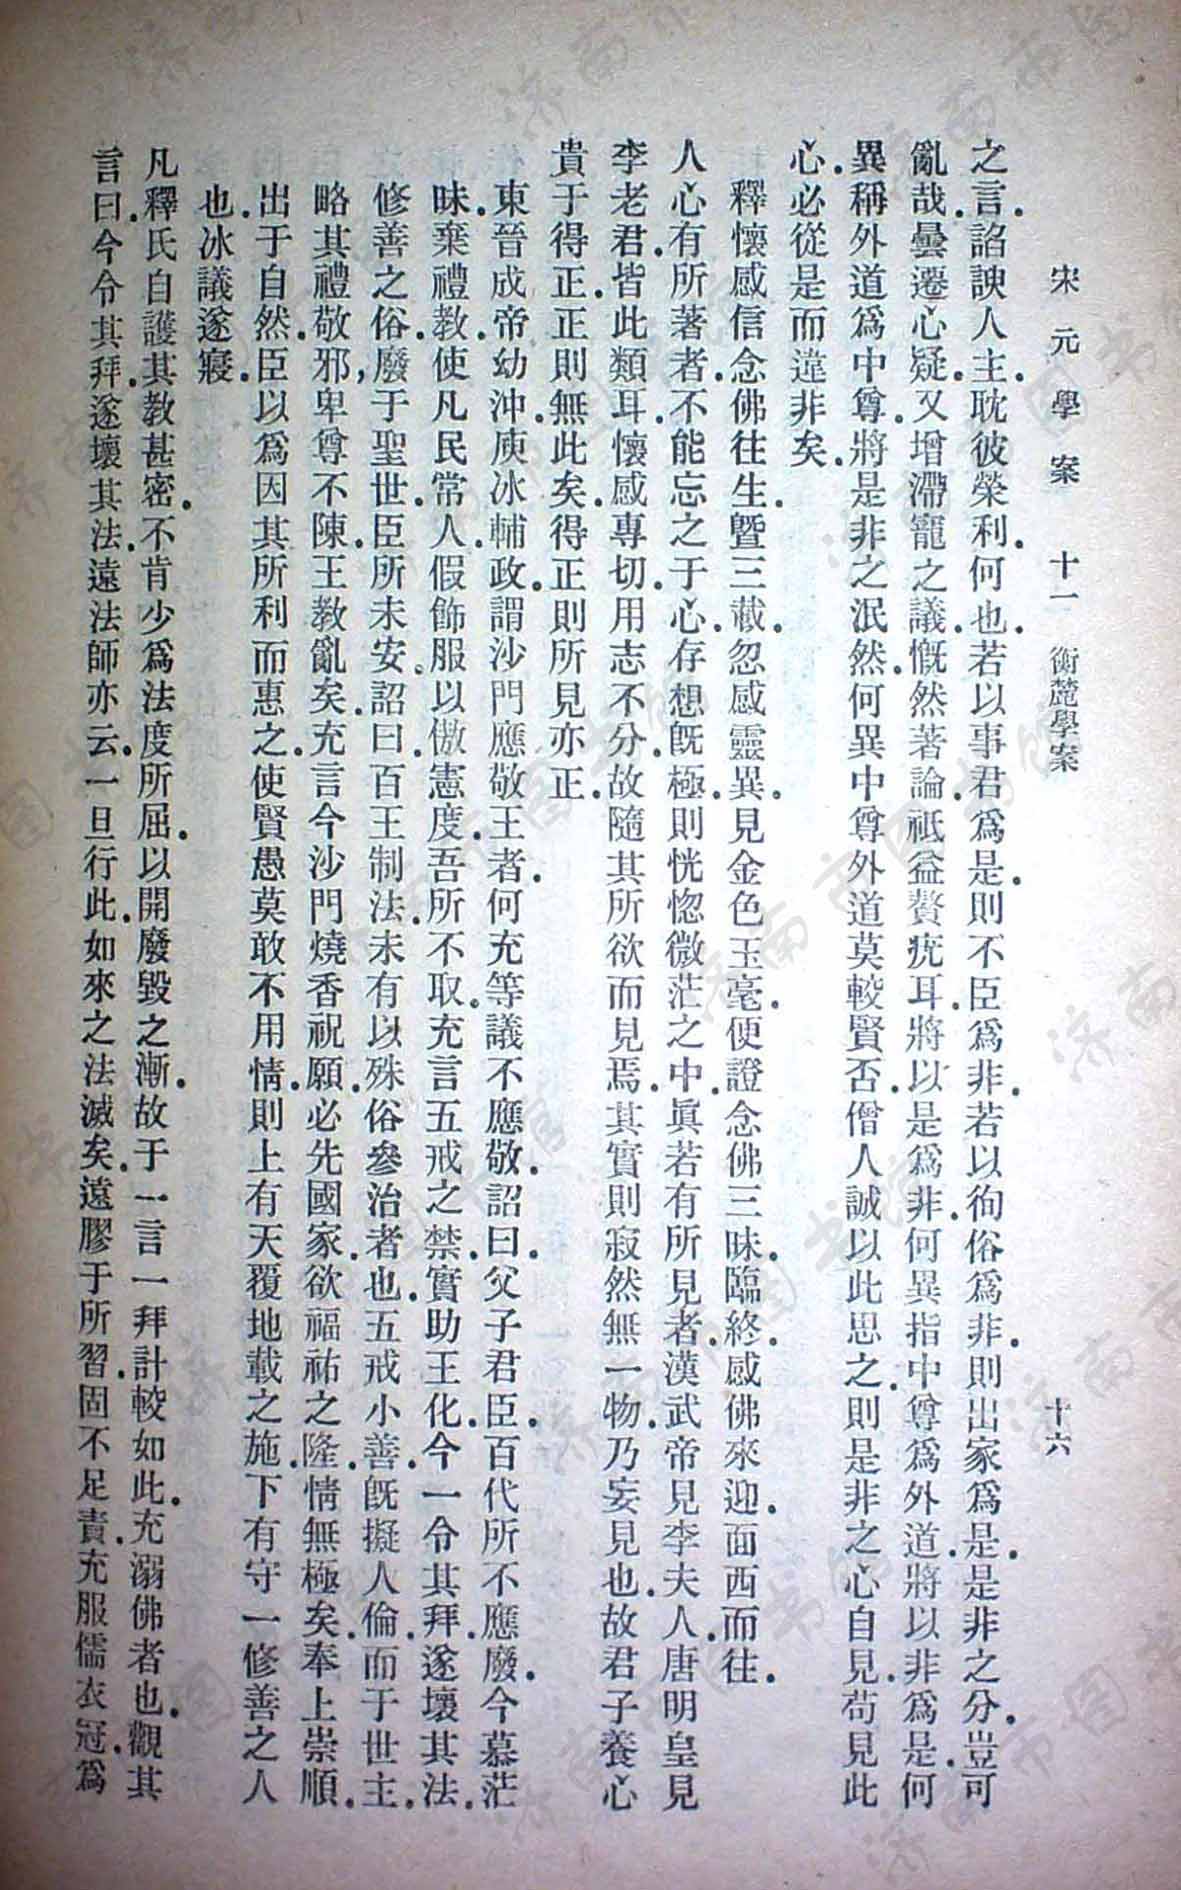 宋元學案 十一 衡麓學案 十六
之言諂諛人主耽彼榮利何也若以事君爲是則不臣爲非若以徇俗爲非則出家爲是是非之分豈可
亂哉曇遷心疑又增滯寵之議慨然著論祗益贅疣耳將以是爲非何異指中尊爲外道將以非爲是何
異稱外道爲中尊將是非之泯然何異中尊外道莫較賢否僧人誠以此思之則是非之心自見苟見此
心必從是而違非矣
釋懷感信念佛往生曁三載忽感靈異見金色玉毫便證念佛三昧臨終感佛來迎面西而往
人心有所著者不能忘之于心存想旣極則恍惚微茫之中眞若有所見者漢武帝見李夫人唐明皇見
李老君皆此類耳懷感專切用志不分故隨其所欲而見焉其實則寂然無一物乃妄見也故君子養心
貴于得正正則無此矣得正則所見亦正
東晉成帝幼沖庾冰輔政謂沙門應敬王者何充等議不應敬詔曰父子君臣百代所不應廢今慕茫
昧棄禮教使凡民常人假飾服以傲憲度吾所不取充言五戒之禁實助王化今一令其拜遂壞其法
修善之俗廢于聖世臣所未安詔曰百王制法未有以殊俗參治者也五戒小善旣擬人倫而于世主
略其禮敬邪卑尊不陳王教亂矣充言今沙門燒香祝願必先國家欲福祐之隆情無極矣奉上崇順
出于自然臣以爲因其所利而惠之使賢愚莫敢不用情則上有天覆地載之施下有守一修善之人
也冰議遂寢
凡釋氏自護其教甚密不肯少爲法度所屈以開廢毀之漸故于一言一拜計較如此充溺佛者也觀其
言曰今令其拜遂壞其法遠法師亦云一旦行此如來之法滅矣遠膠于所習固不足責充服儒衣冠爲